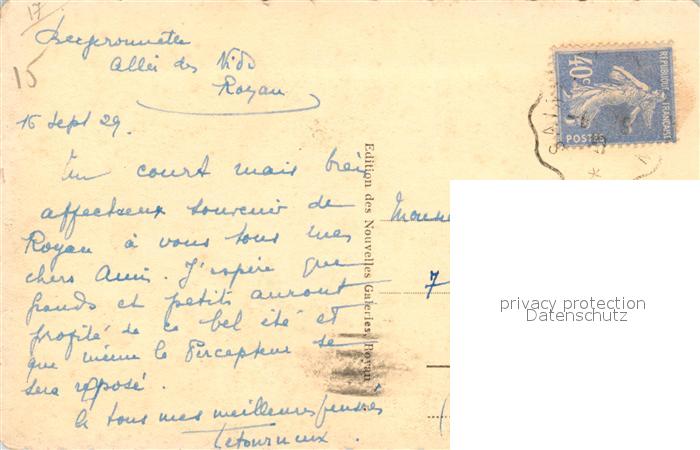 17
15
Allée des Nids
Royan
16 Sept 29.
Un court mais bien
affectueux souvenir de
Royan à vous tous mes
chers Amis. J'espère que
grands et petits auront
profité de ce bel été et
que même le Percepteur se
sera reposé.
à tous mes meilleures pensées
Letourneux.
Edition des Nouvelles Galeries, Royan
40c
REPUBLIQUE FRANÇAISE
POSTES
7
privacy protection
Datenschutz